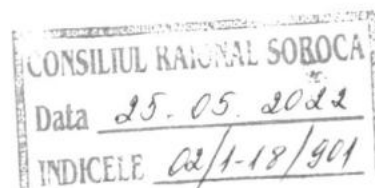 CONSILIUL RAIONAL SOROCA
Data 25.05.2022
INDICELE 02/1-18/901